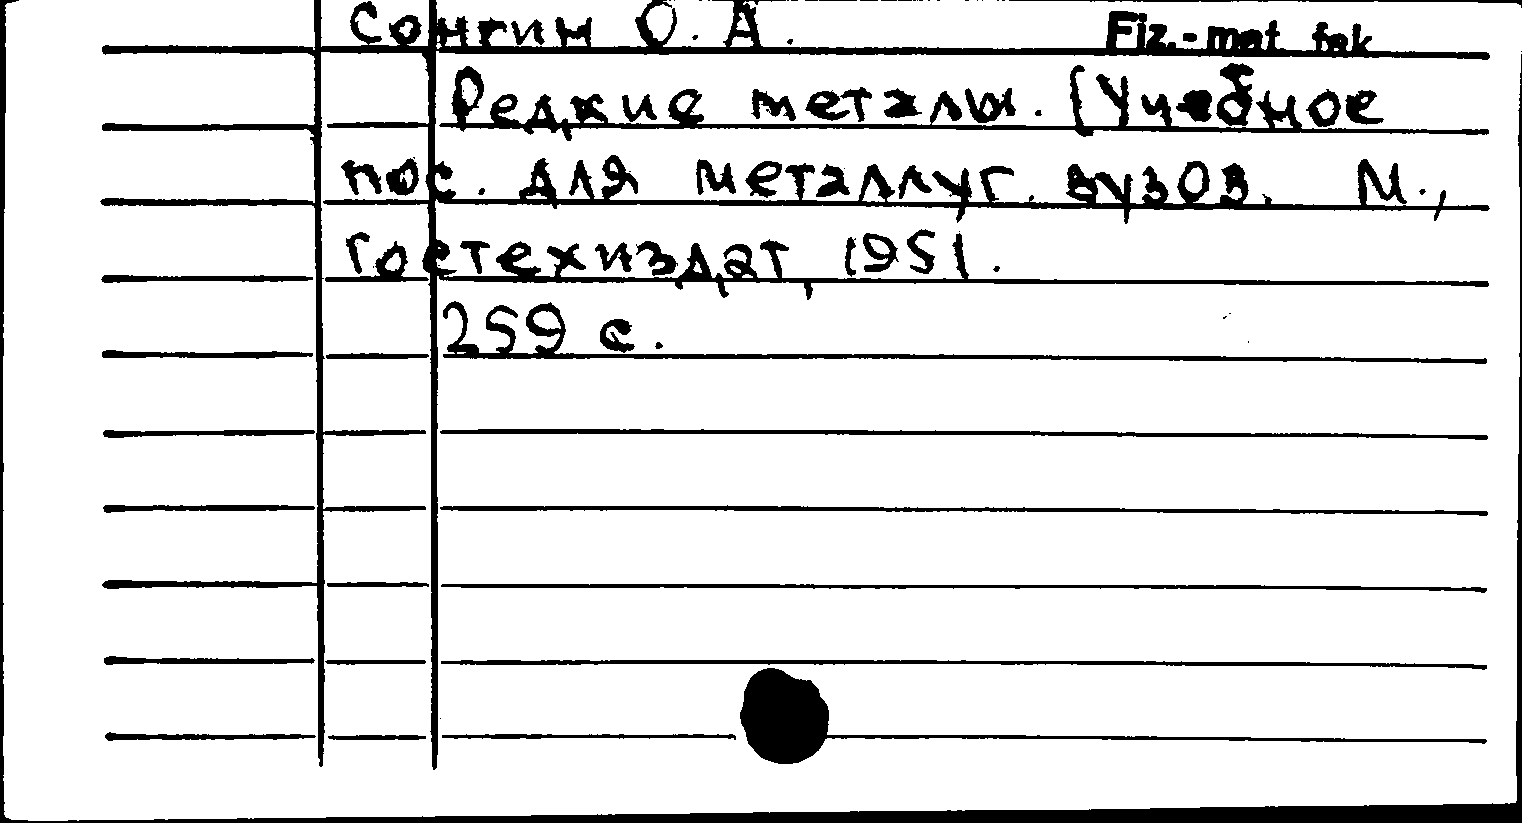 Сонгин О. А. Fiz.-mat. fak
Редкие металы. [Учебное
пос. для металлуг. вузов. М.,
гостехиздат, 1951.
259 с.